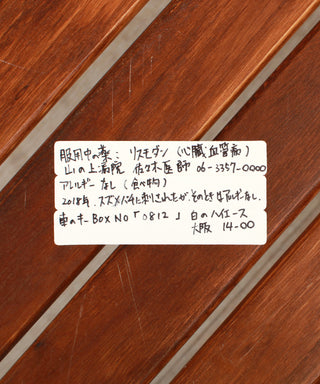 服用中の薬： リスモダン（心臓、血管病）
山の上病院 佐々木医師 06-3357-0000
アレルギー なし（食べ物）
2018年、スズメバチに刺されたが、そのときはアレルギーなし。
車のキー BOX NO「0812」 白のハイエース
大阪 14-00